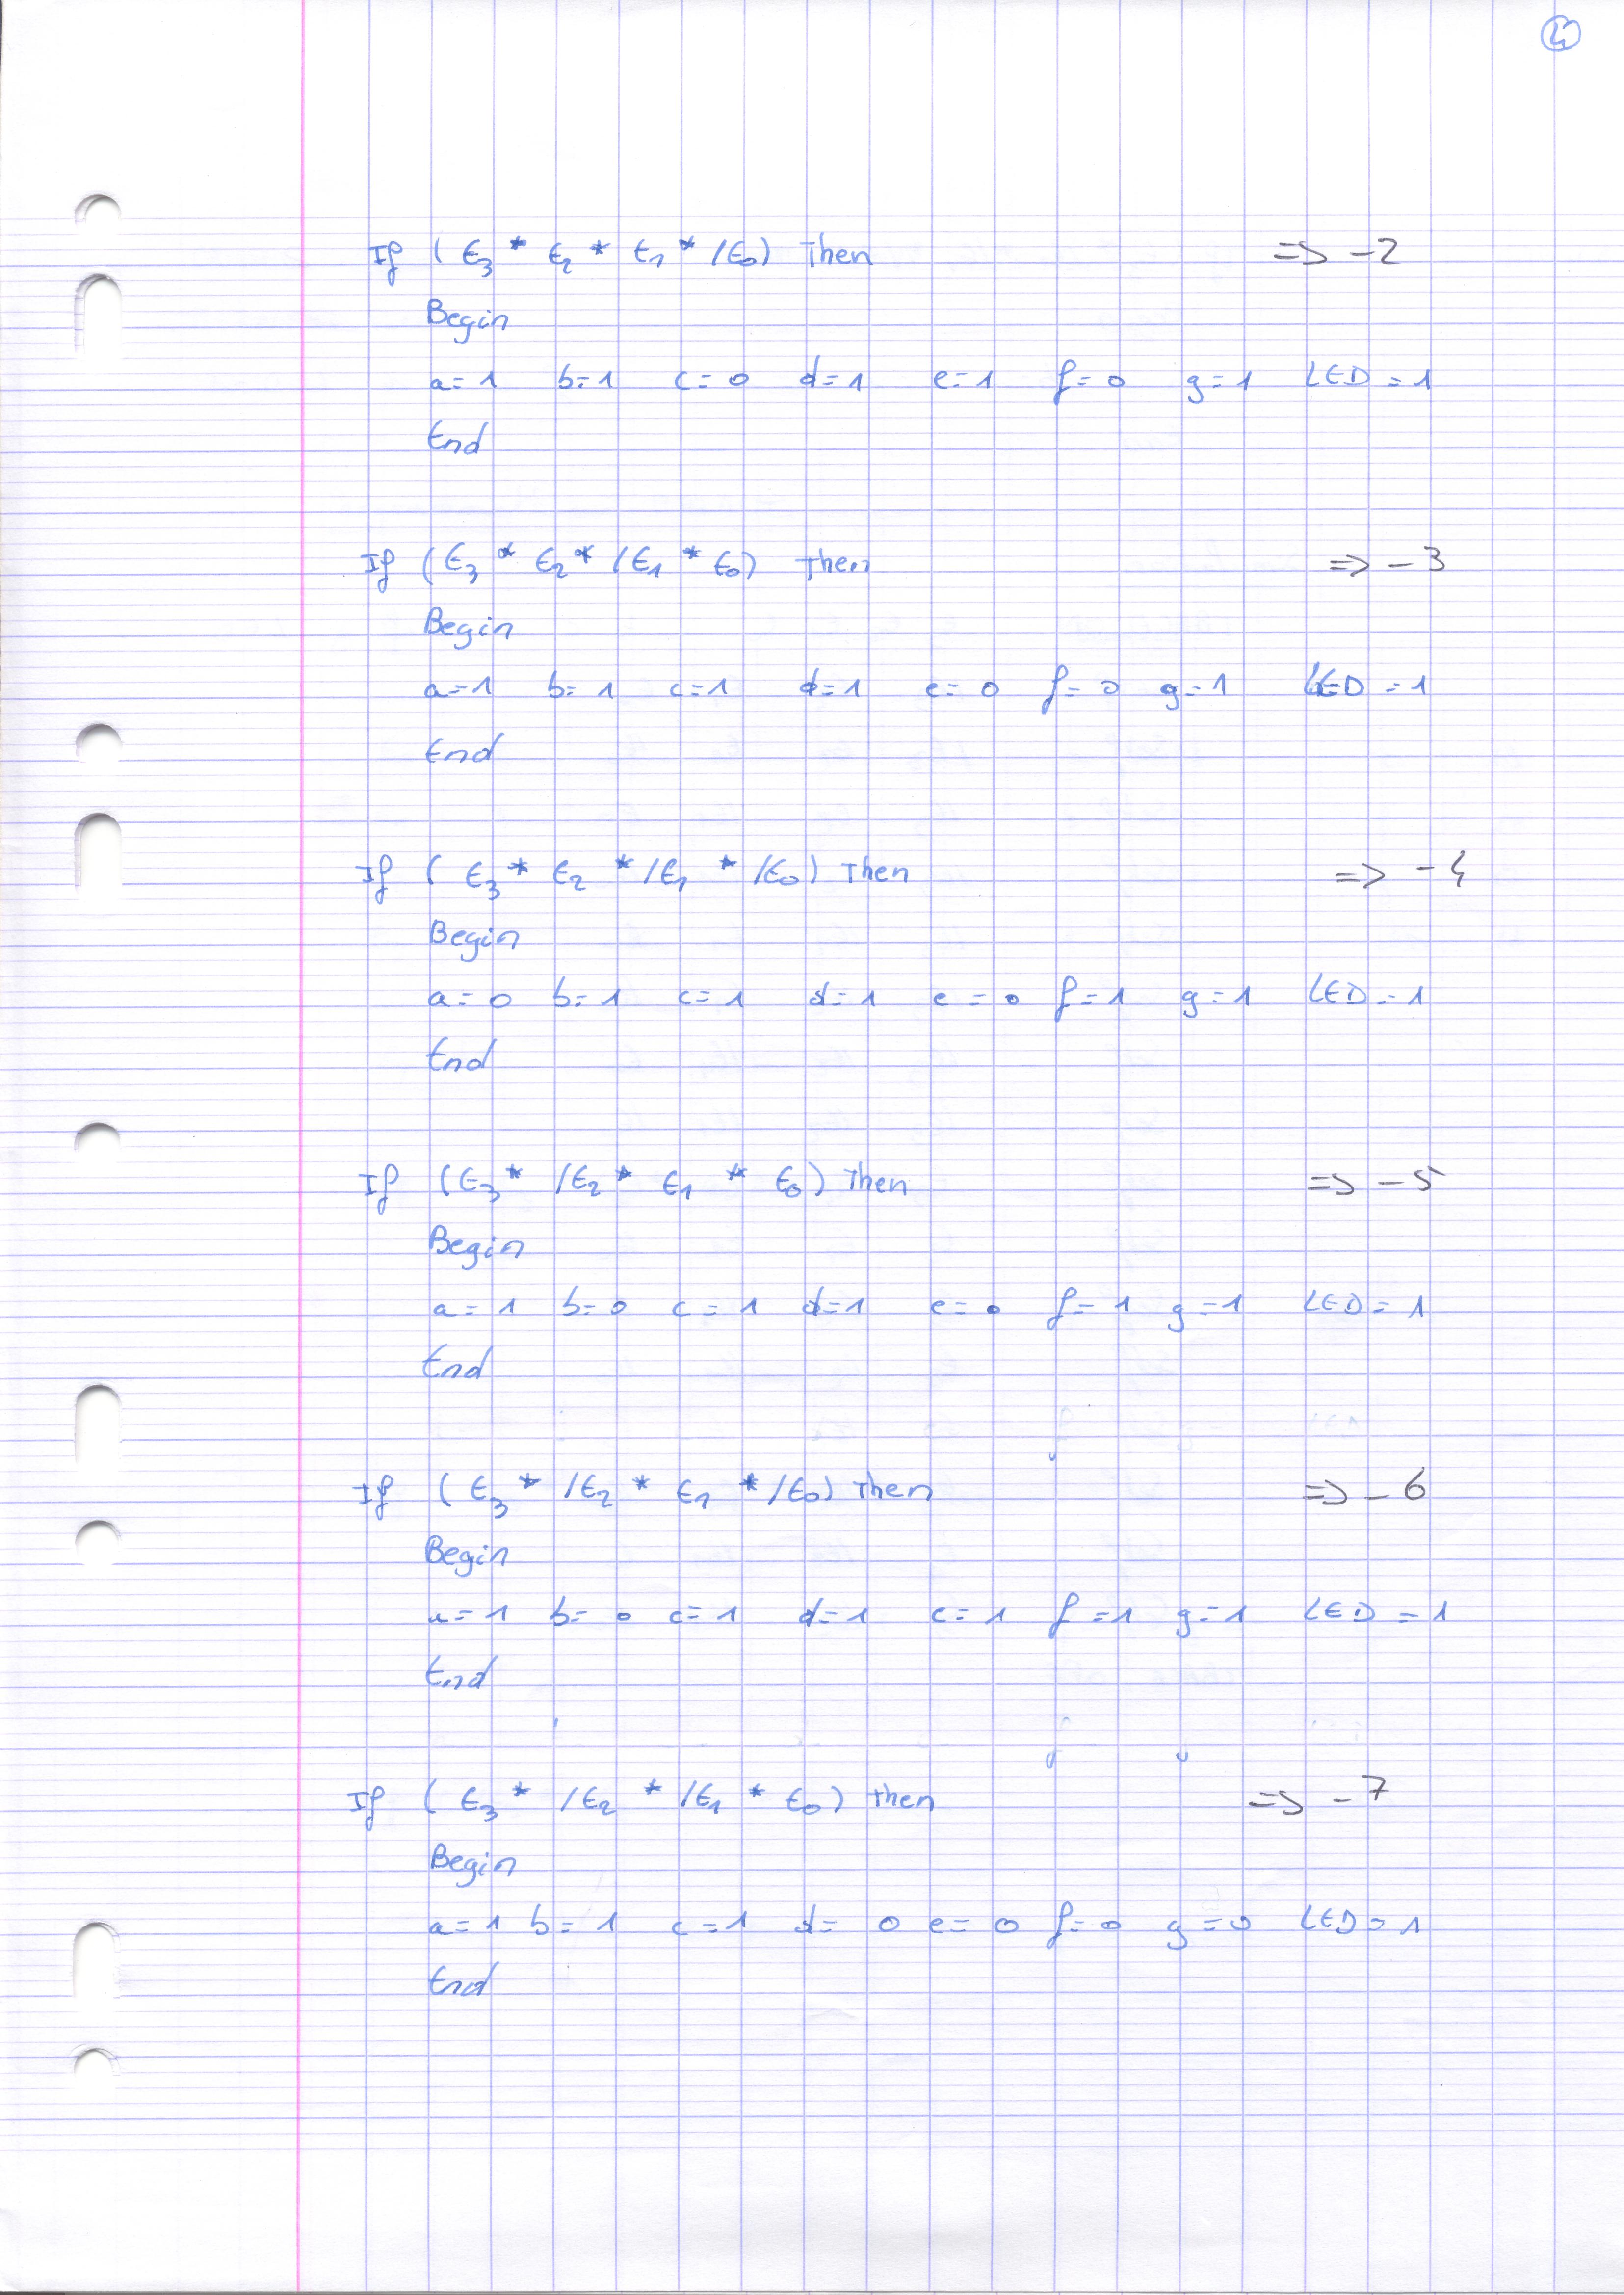 4
If ( E3 * E2 * E1 * /E0) Then => -2
Begin
a=1 b=1 c=0 d=1 e=1 f=0 g=1 LED=1
End
If (E3 * E2 * /E1 * E0) Then => -3
Begin
a=1 b=1 c=1 d=1 e=0 f=0 g=1 LED=1
End
If ( E3 * E2 * /E1 * /E0) Then => -4
Begin
a=0 b=1 c=1 d=1 e=0 f=1 g=1 LED=1
End
If (E3 * /E2 * E1 * E0) Then => -5
Begin
a=1 b=0 c=1 d=1 e=0 f=1 g=1 LED=1
End
If ( E3 * /E2 * E1 * /E0) Then => -6
Begin
a=1 b=0 c=1 d=1 e=1 f=1 g=1 LED=1
End
If ( E3 * /E2 * /E1 * E0) Then => -7
Begin
a=1 b=1 c=1 d=0 e=0 f=0 g=0 LED=1
End